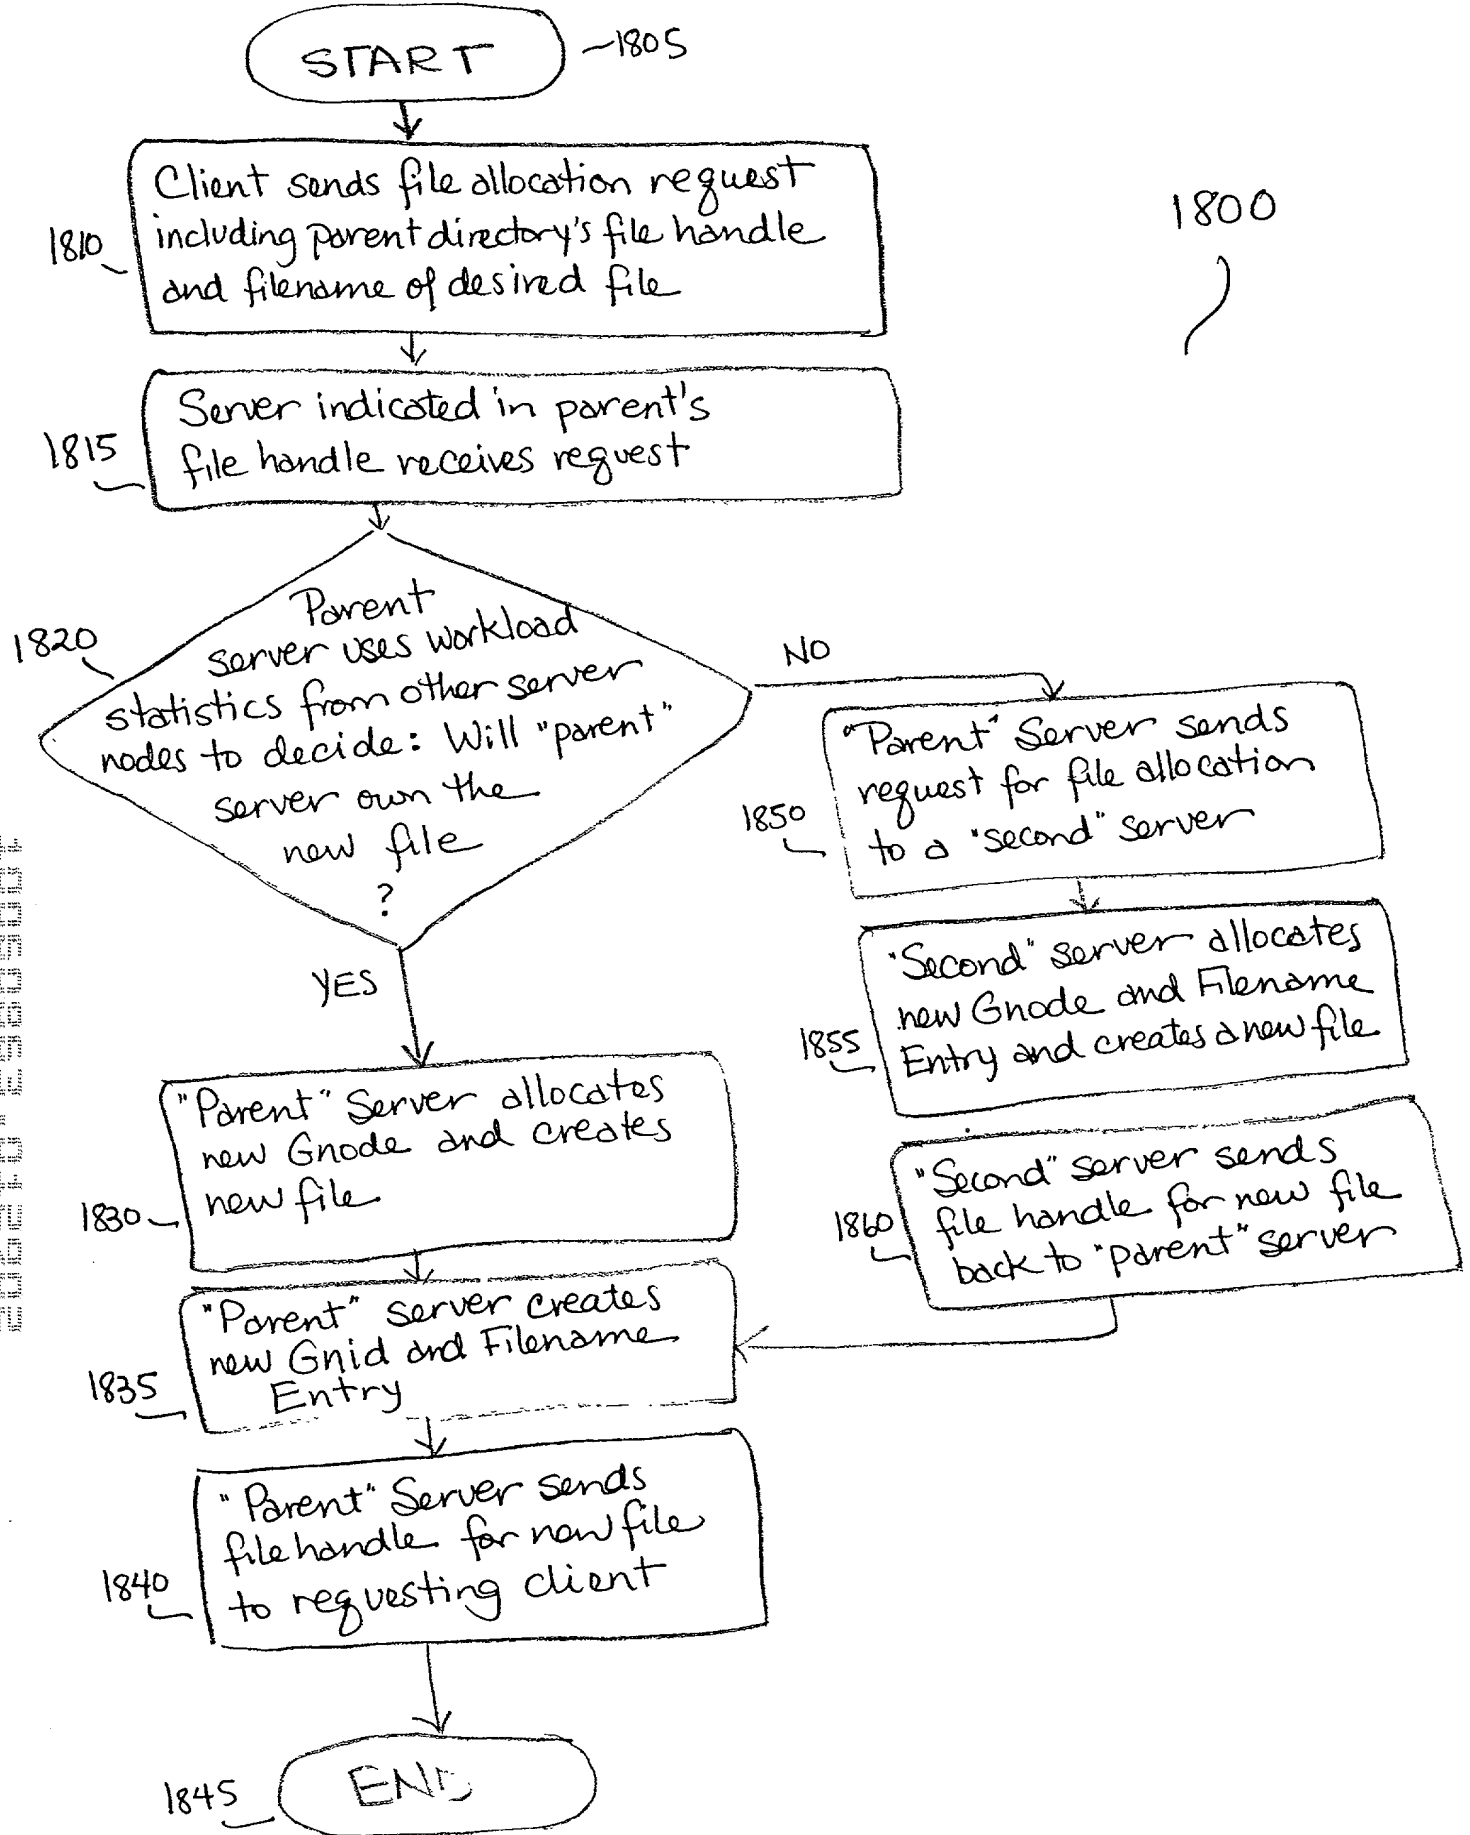 START
1805
Client sends file allocation request
including parent directory's file handle
and filename of desired file
1810
1800
Server indicated in parent's
file handle receives request
1815
Parent
server uses workload
statistics from other server
nodes to decide: Will "parent"
server own the
new file
?
1820
NO
"Parent" Server sends
request for file allocation
to a "second" server
1850
"Second" server allocates
new Gnode and Filename
Entry and creates a new file
1855
"Second" server sends
file handle for new file
back to "parent" server
1860
YES
"Parent" Server allocates
new Gnode and creates
new file
1830
"Parent" server creates
new Gnid and Filename
Entry
1835
"Parent" Server sends
file handle for new file
to requesting client
1840
END
1845